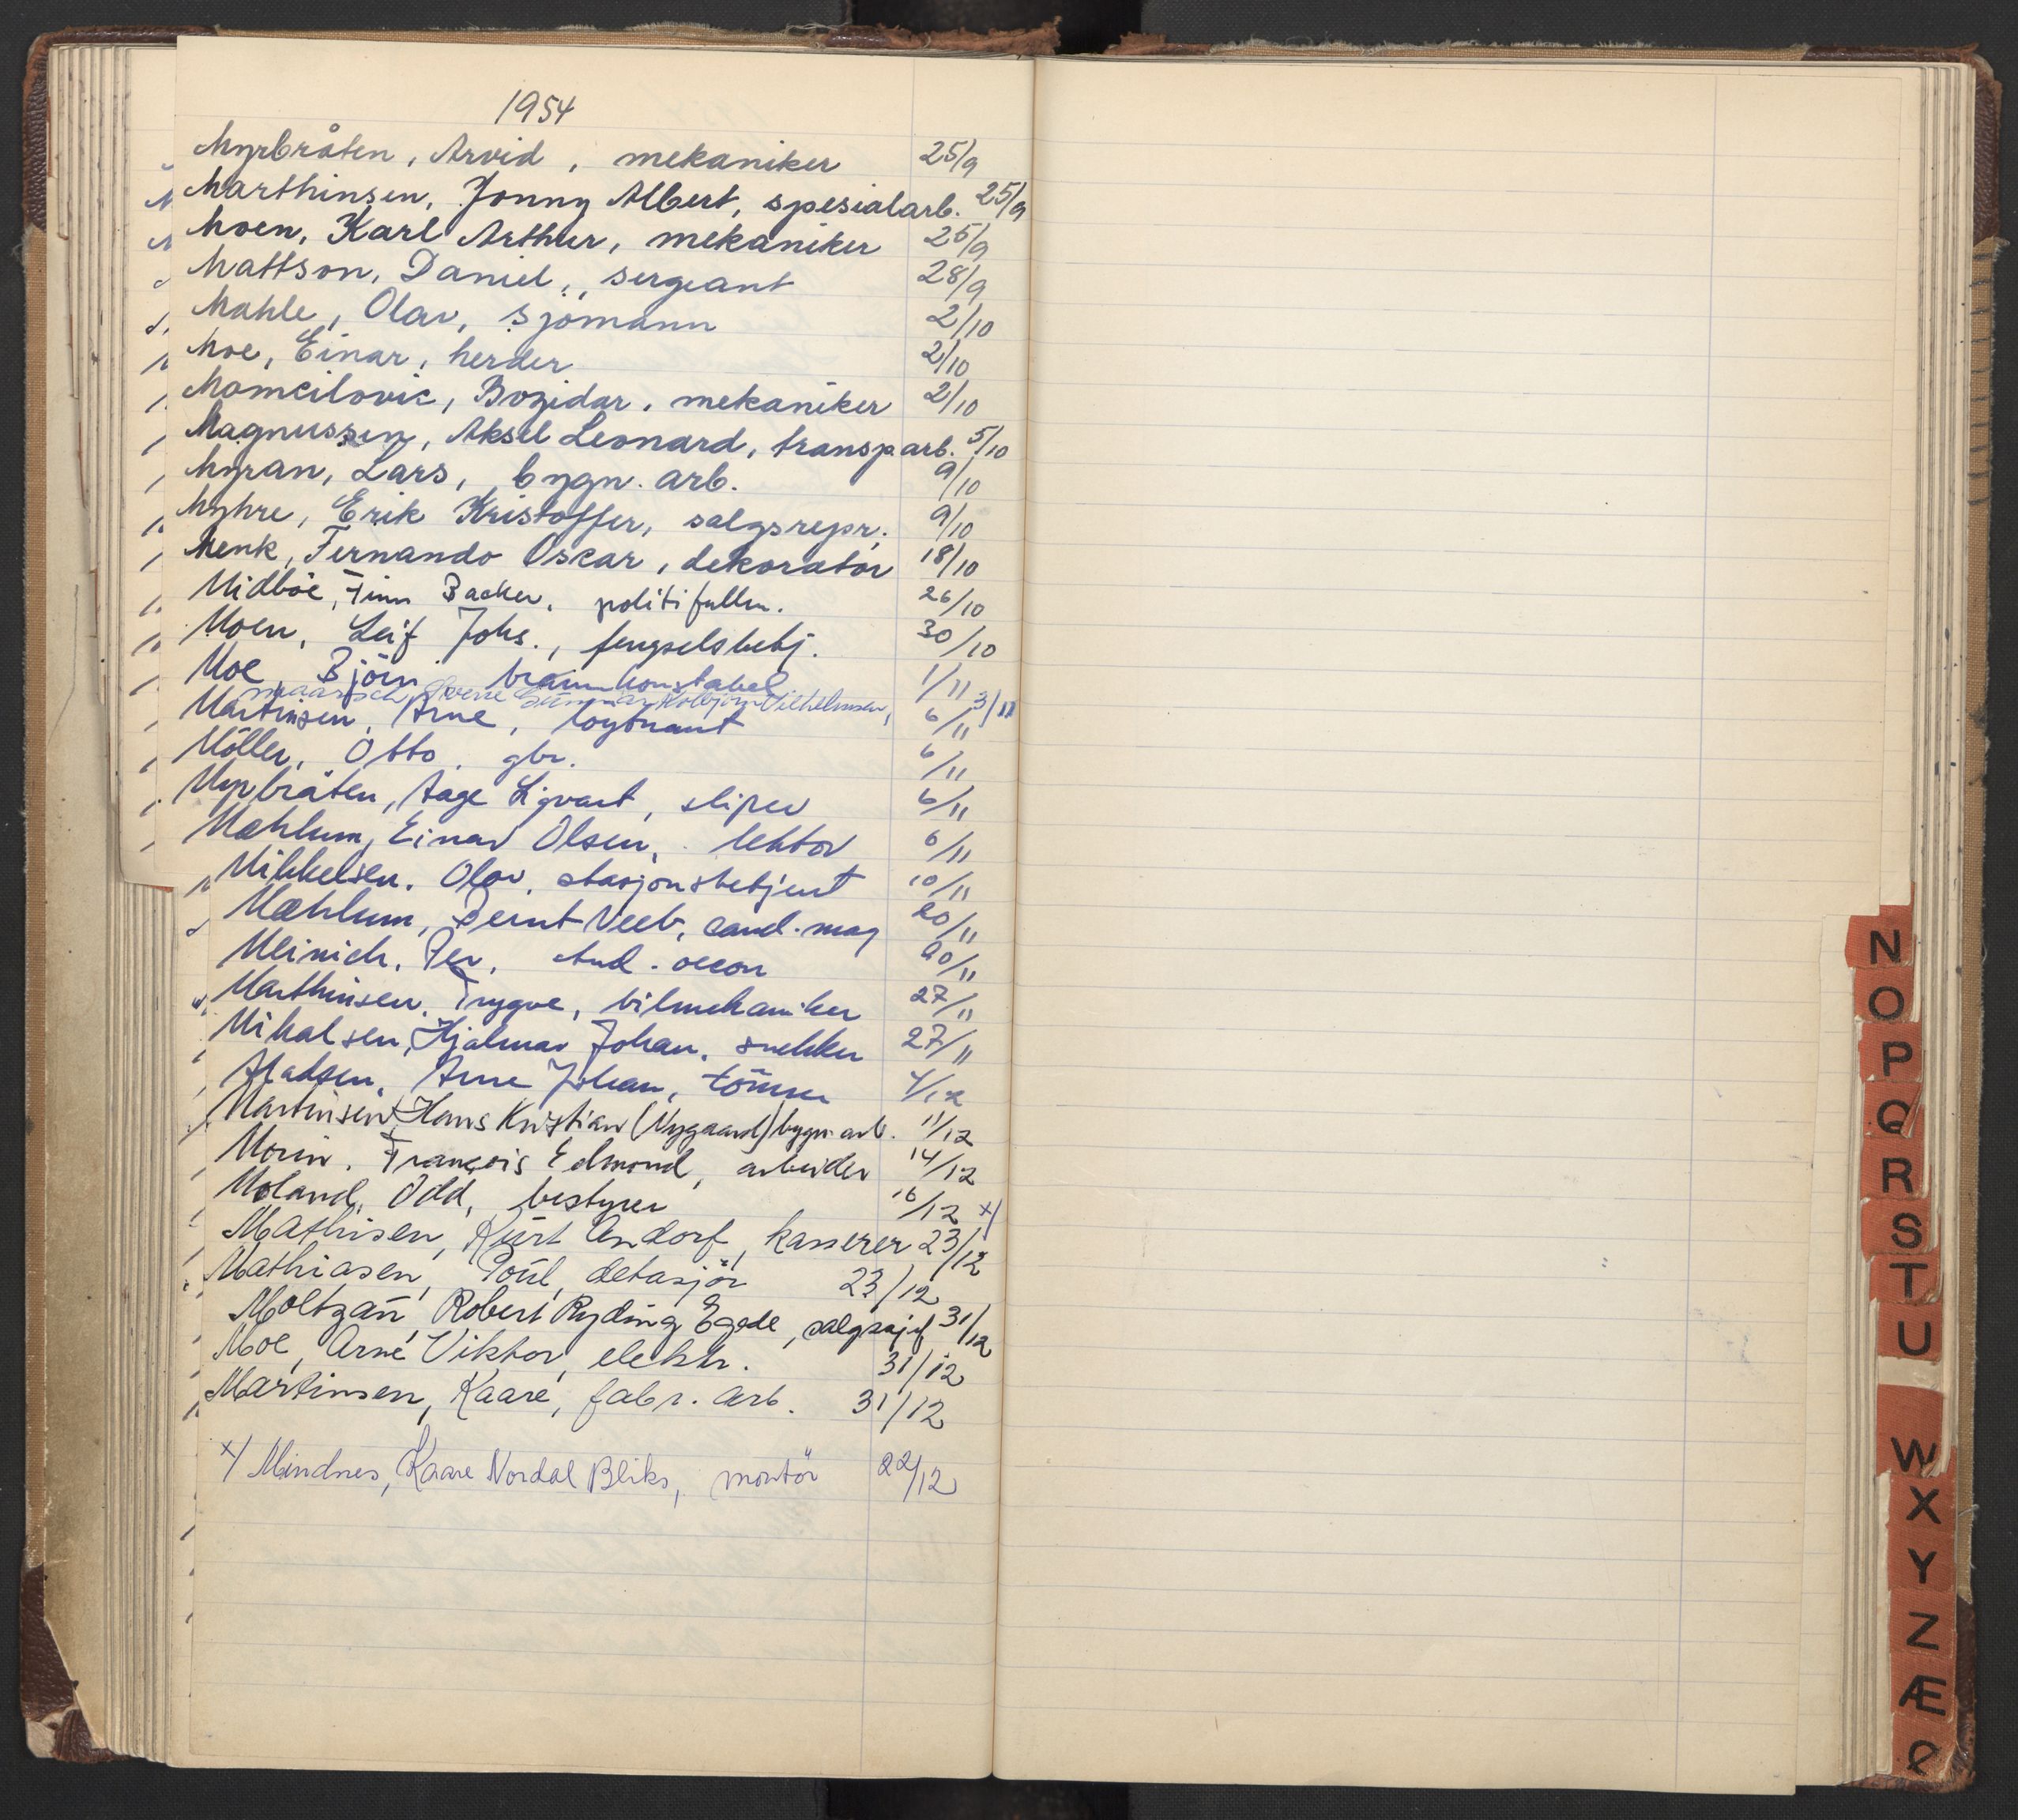 1954
Myrbråten, Arvid, mekaniker 25/9
Marthinsen, Jonny Albert, spesialarb. 25/9
Moen, Karl Arthur, mekaniker 25/9
Mattson, Daniel, sergeant 28/9
Mahle, Olav, sjømann 2/10
Moe, Einar, herder 2/10
Momcilovic, Bozidar, mekaniker 2/10
Magnussen, Aksel Leonard, transp.arb. 5/10
Myran, Lars, bygn. arb. 9/10
Myhre, Erik Kristoffer, salgsrepr. 9/10
Menk, Fernando Oscar, dekoratör 18/10
Midböe, Finn Backer, politifullm. 26/10
Moen, Leif Johs., fengselsbetj. 30/10
Moe, Björn, brannkonstabel 1/11
Kolbjörn Vilhelmsen, 3/11
Martinsen, Arne, löytnant 6/11
Möller, Otto, gbr. 6/11
Myrbråten, Aage Sigvart, sliper 6/11
Mæhlum, Einar Olsen, lektor 6/11
Mikkelsen, Olav, stasjonsbetjent 10/11
Mæhlum, Bernt Veeb, cand. mag 20/11
Meinich, Per, stud. oecon 20/11
Marthinsen, Trygve, bilmekaniker 27/11
Mikalsen, Hjalmar Johan, snekker 27/11
Madsen, Arne Johan, tömrer 4/12
Martinsen, Hans Kristian (Nygaard) bygn. arb. 11/12
Morin, François Edmond, arbeider 14/12
Moland, Odd, bestyrer 16/12 x/
Mathisen, Kurt Andorf, kasserer 23/12
Mathiasen, Poul, detasjör 23/12
Moltzau, Robert Ryding Egede, salgssjef 31/12
Moe, Arne Viktor, elektr. 31/12
Martinsen, Kaare, fabr. arb. 31/12
x/ Mindnes, Kaare Nordal Bliks, montör 22/12
N
O
P
Q
R
S
T
U
W
X
Y
Z
Æ